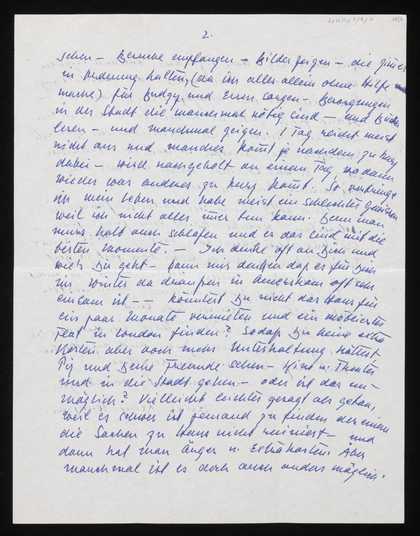 2.
sehen – Besuche empfangen – Bilder zeigen – die
in Ordnung halten, (da ich alles allein ohne Hilfe
mache) für Budgy und Essen sorgen – Besorgungen
in der Stadt die manchesmal nötig sind – und Bücher
lesen – und manchmal zeigen. 1 Tag reicht meist
nicht aus und manches kommt je nachdem zu kurz
dabei – wird nachgeholt an einem Tag wo dann
wieder was anderes zu kurz kommt. So verbringe
ich mein Leben und habe meist ein schlechtes Gewissen
weil ich nicht alles tun kann. Denn man
muss halt auch schlafen und es das sind mit die
besten Momente. – Ich denke oft an Dich und
wie's Dir geht – kann mir denken dass es für Dich
im Winter da draussen in oft
einsam ist – – könntest Du nicht das Haus für
ein paar Monate vermieten und ein möbliertes
Flat in London finden? Sodass Du keine extra
Kosten aber doch mehr Unterhaltung hättest
und Deine Freunde sehen – Kino u. Theater
und in die Stadt gehen – oder ist das un-
möglich? Vielleicht leichter gesagt als getan,
weil es schwer ist jemand zu finden der einem
die Sachen zu Haus nicht ruiniert – und
dann hat man Ärger u. Extrakosten. Aber
manchmal ist es doch auch anders möglich.